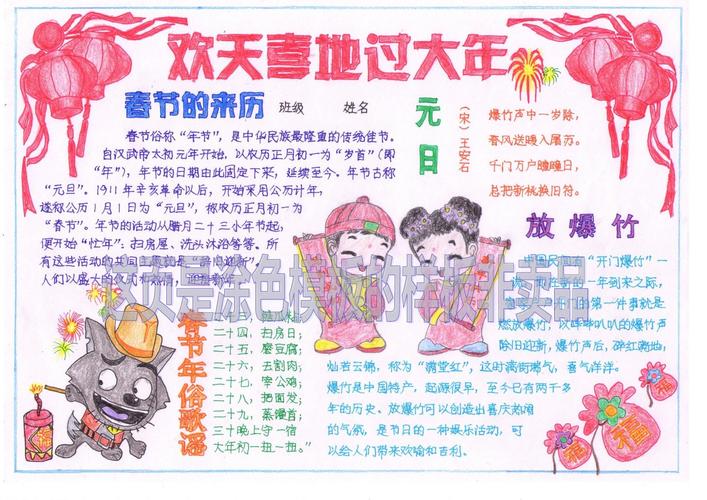 欢天喜地过大年
春节的来历 班级 姓名
春节俗称“年节”，是中华民族最隆重的传统佳节。
自汉武帝太初元年开始，以农历正月初一为“岁首”（即
“年”），年节的日期由此固定下来，延续至今。年节古称
“元旦”。1911年辛亥革命以后，开始采用公历计年，
遂称公历1月1日为“元旦”，称农历正月初一为
“春节”。年节的活动从腊月二十三小年节起，
便开始“忙年”：扫房屋、洗头沐浴等等。所
有这些活动的共同主题就是“辞旧迎新”。
人们以盛大的仪式和热情，迎接新年
元日
（宋）王安石
爆竹声中一岁除，
春风送暖入屠苏。
千门万户曈曈日，
总把新桃换旧符。
放爆竹
中国民间有“开门爆竹”一
说。即在新的一年到来之际，
家家户户开门的第一件事就是
燃放爆竹；以哔哔叭叭的爆竹声
除旧迎新，爆竹声后，碎红满地，
灿若云锦，称为“满堂红”，这时满街瑞气，喜气洋洋。
爆竹是中国特产，起源很早，至今已有两千多
年的历史。放爆竹可以创造出喜庆热闹
的气氛，是节日的一种娱乐活动，可
以给人们带来欢愉和吉利。
春节年俗歌谣
二十四，扫房日；
二十五，磨豆腐；
二十六，去割肉；
二十七，宰公鸡；
二十八，把面发；
二十九，蒸馒首；
三十晚上守一宿
大年初一扭一扭。”
此页是涂色模板的样板非卖品
福
福
福